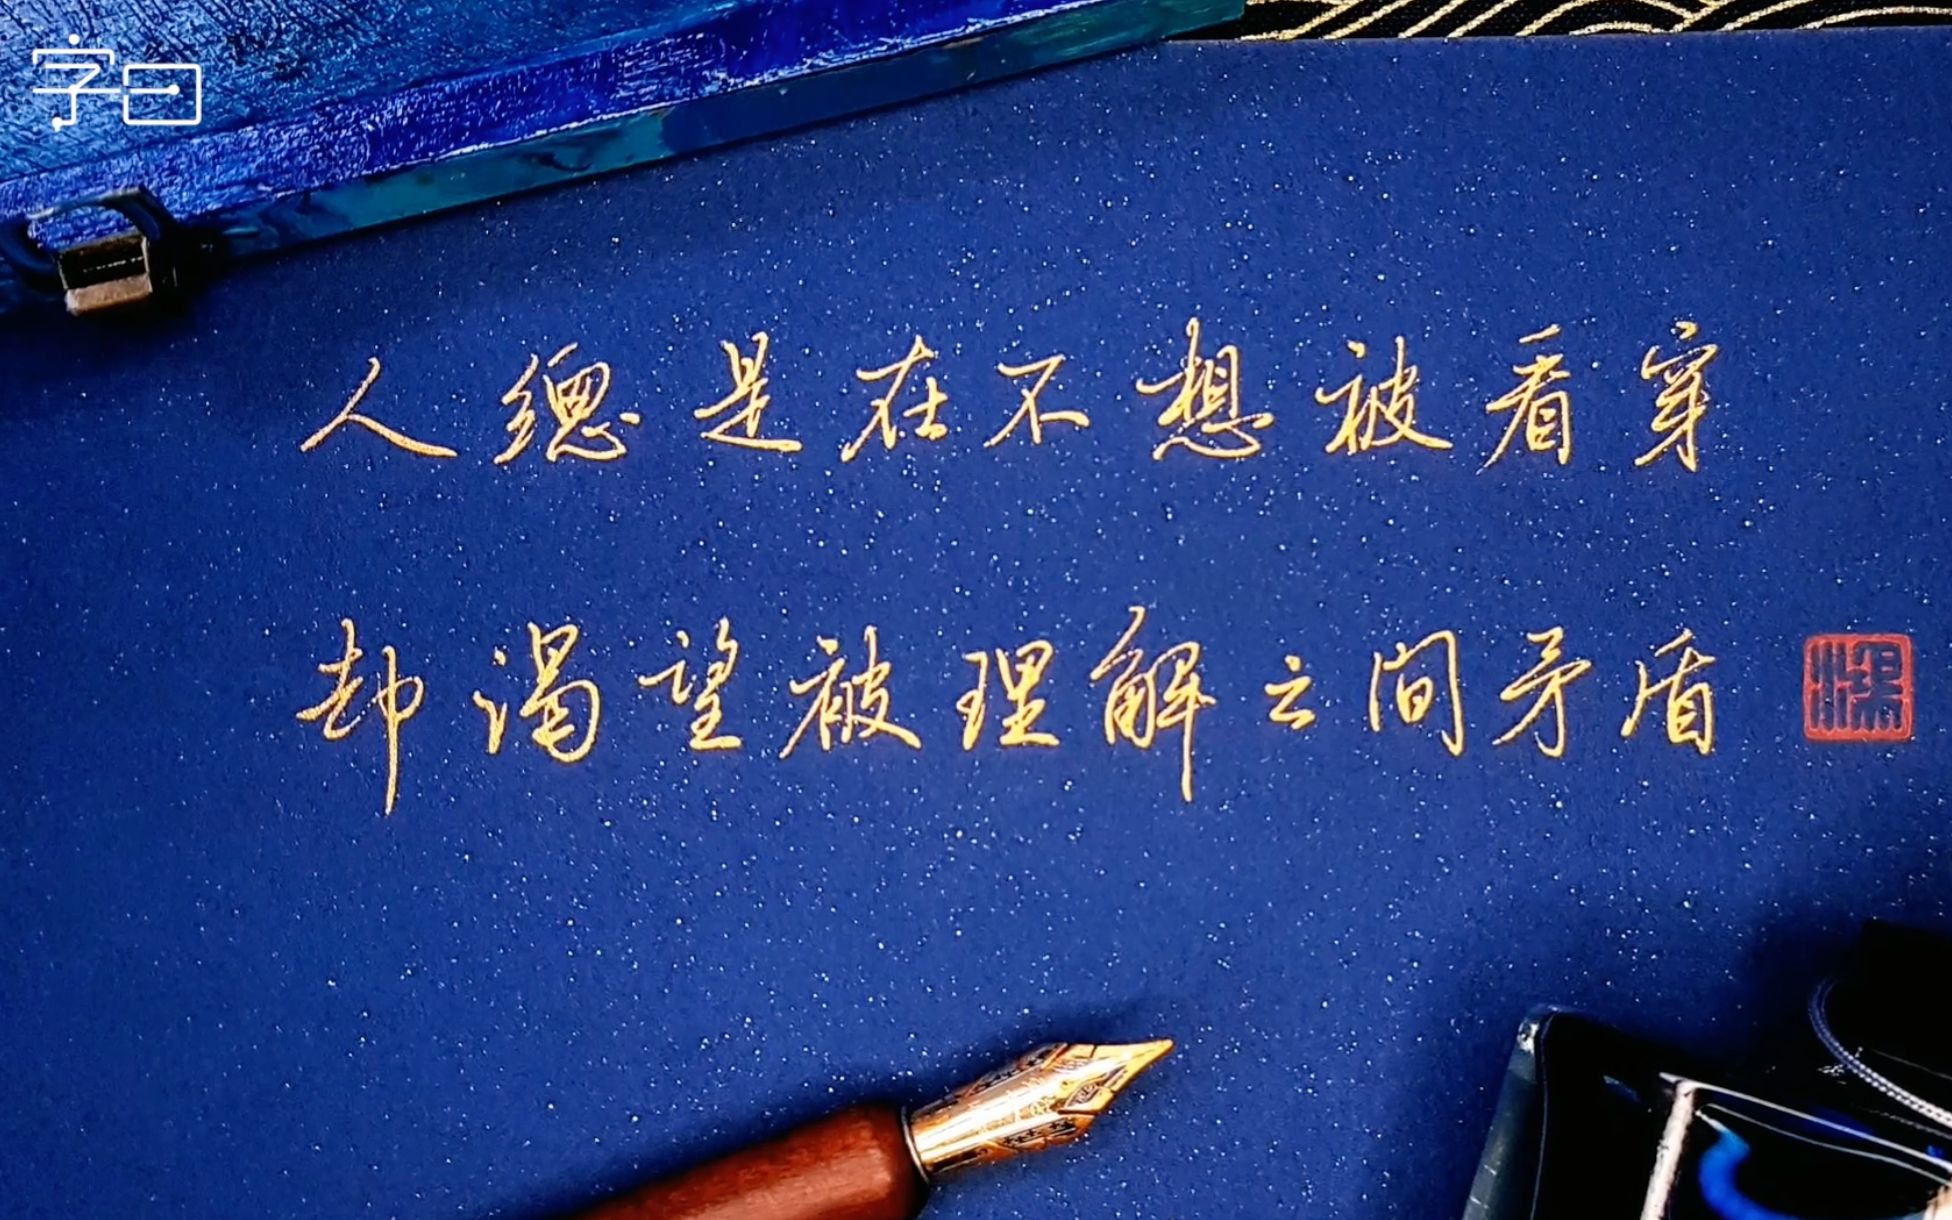 字曰
人總是在不想被看穿
却渴望被理解之间矛盾